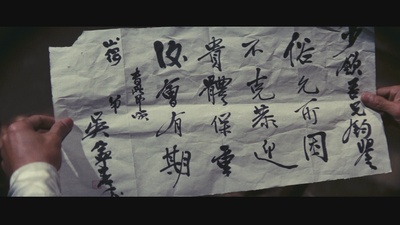 吾兄鈞鑒
俗冗所困
不克恭迎
貴體保重
後會有期
弟 吳